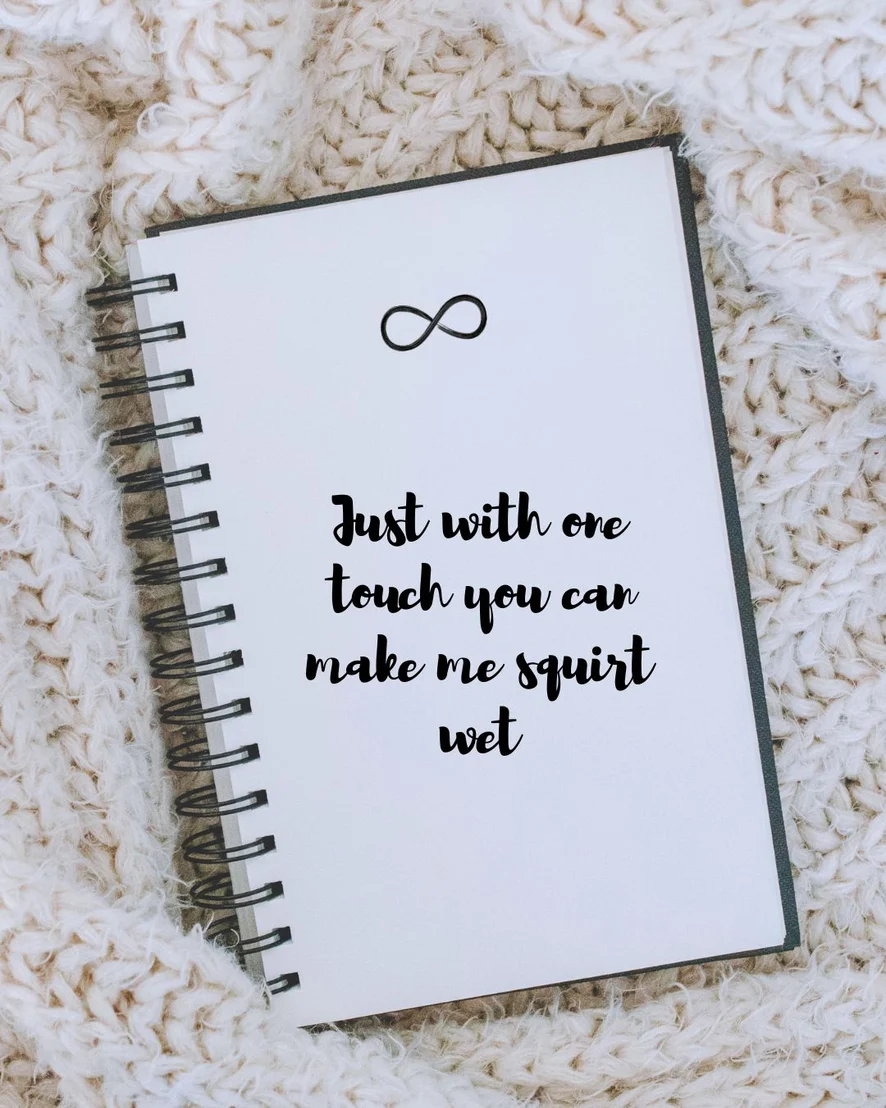 Just with one
touch you can
make me squirt
wet